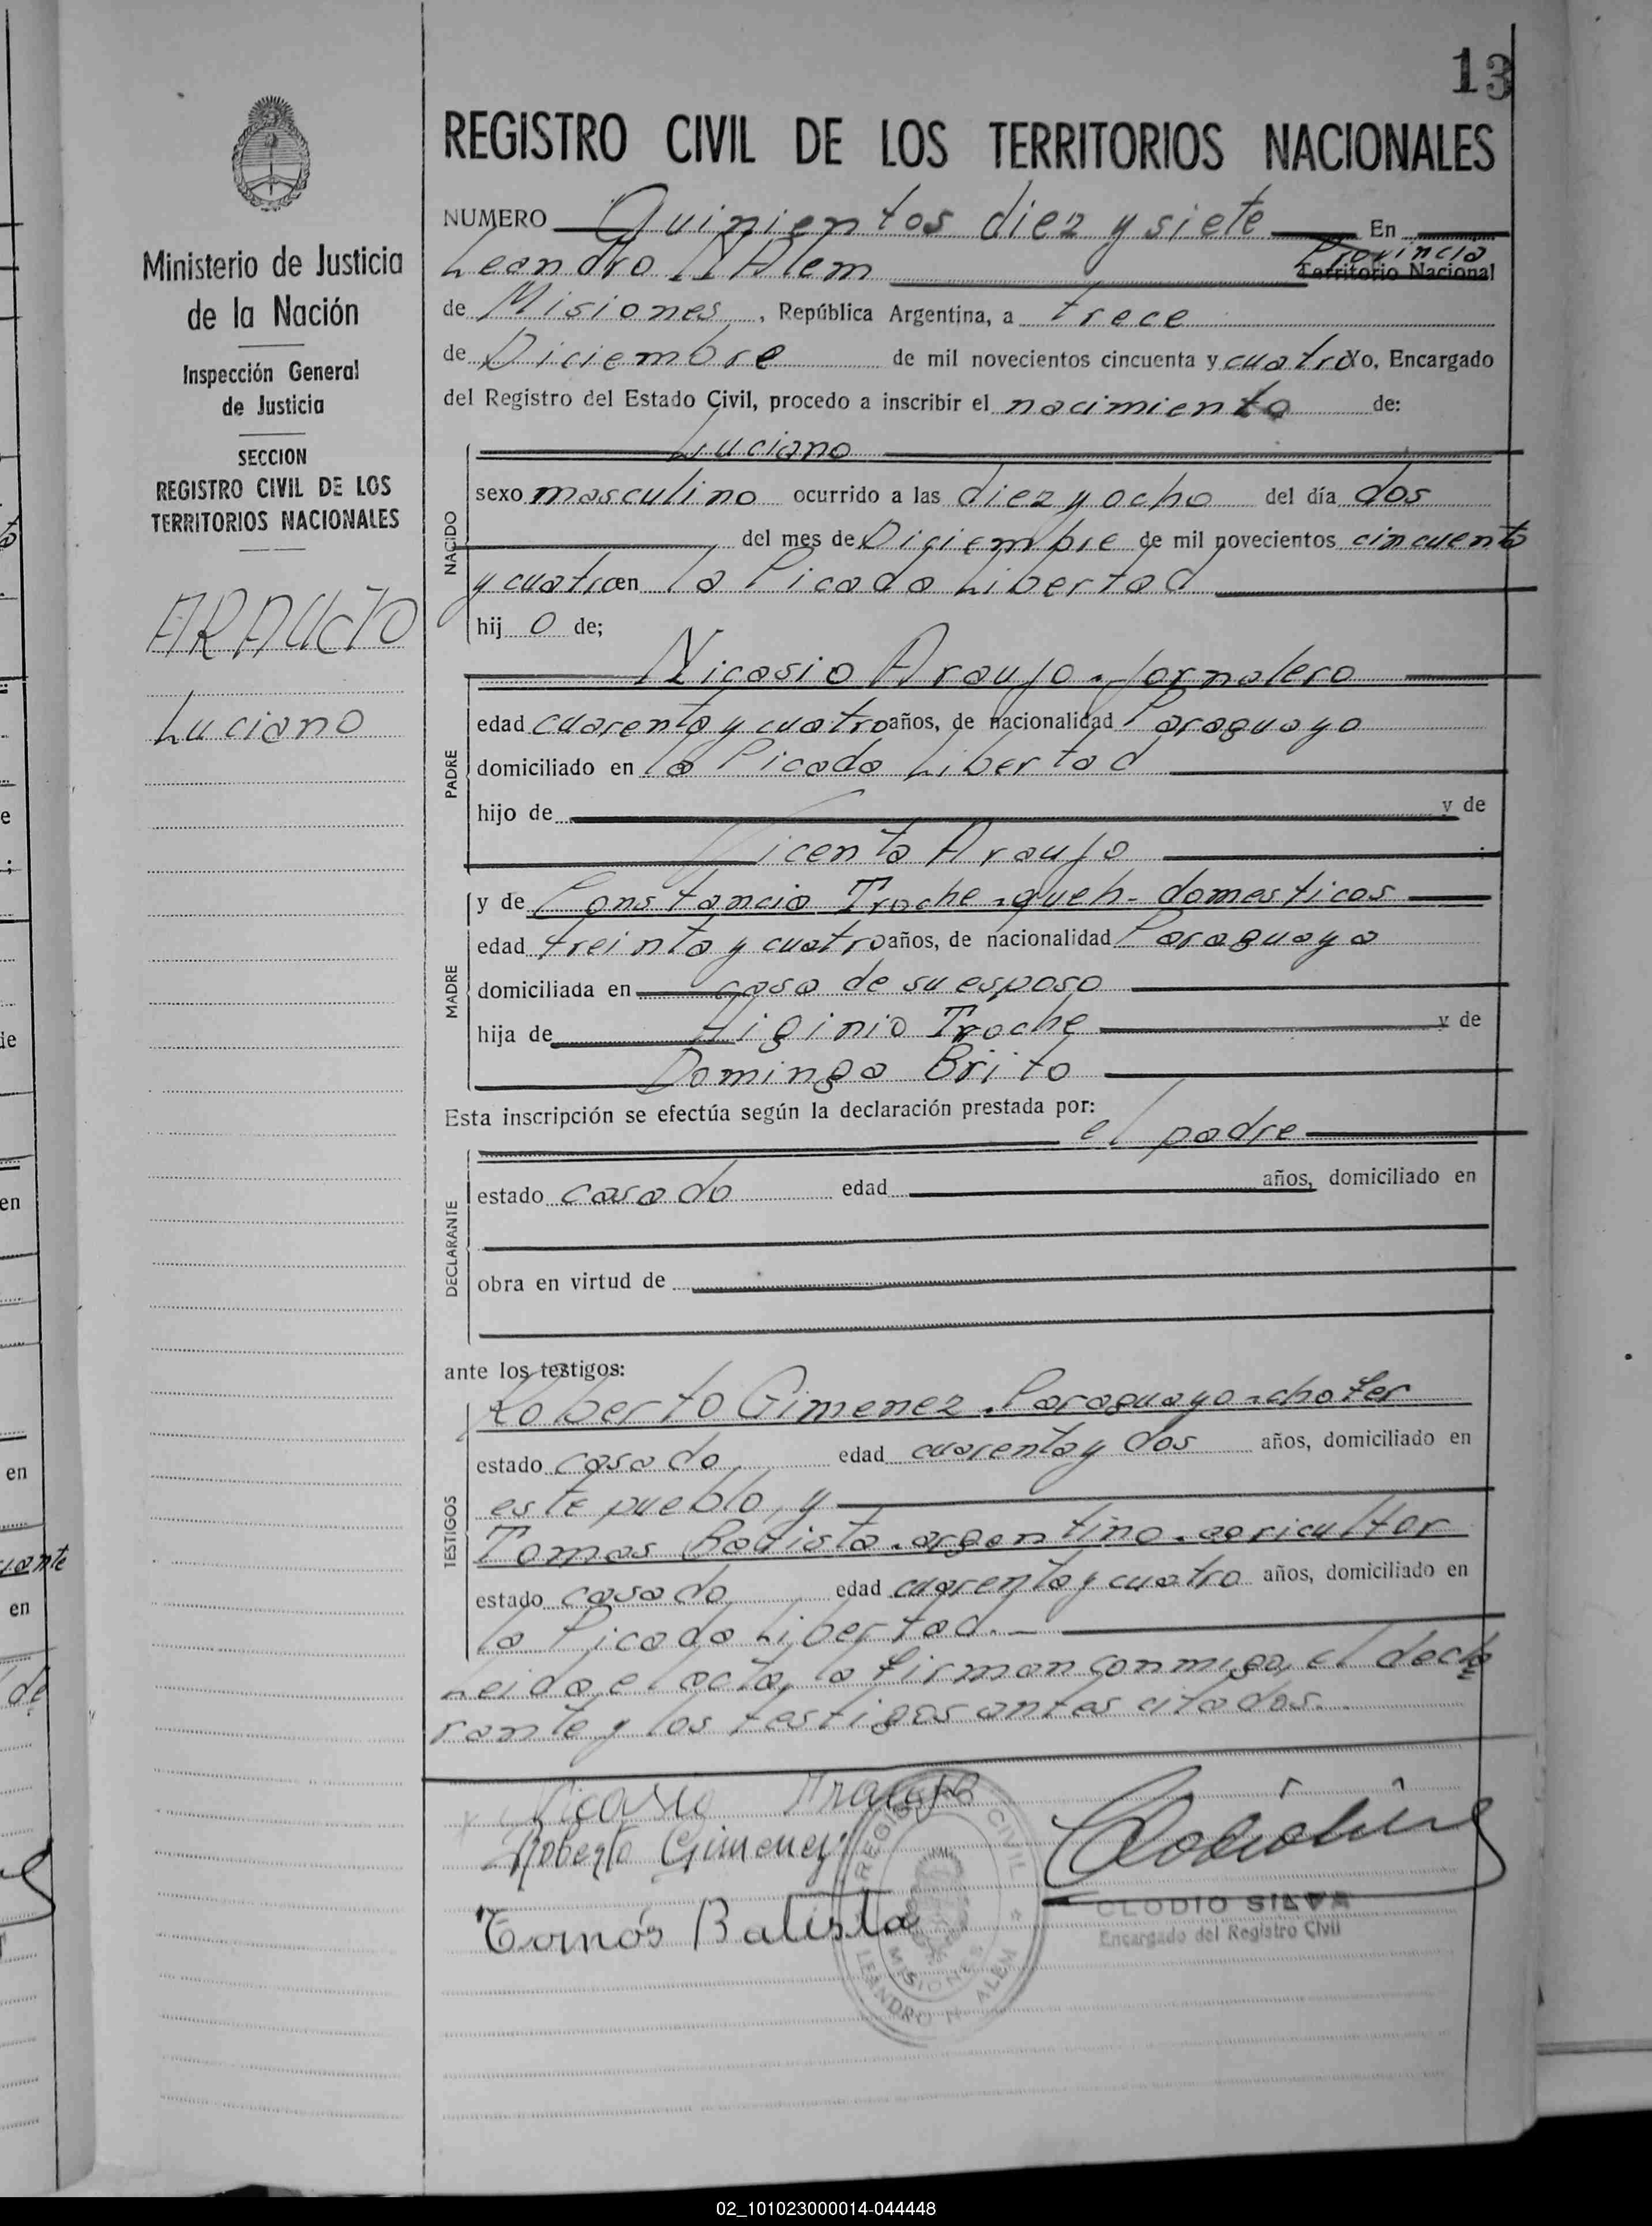 13
REGISTRO CIVIL DE LOS TERRITORIOS NACIONALES
Ministerio de Justicia
de la Nación
Inspección General
de Justicia
SECCION
REGISTRO CIVIL DE LOS
TERRITORIOS NACIONALES
ARAUJO
Luciano
NUMERO Quinientos diez y siete En
Leandro N Alem Provincia Territorio Nacional
de Misiones, República Argentina, a trece
de Diciembre de mil novecientos cincuenta y cuatro Yo, Encargado
del Registro del Estado Civil, procedo a inscribir el nacimiento de:
NACIDO
Luciano
sexo masculino ocurrido a las diez y ocho del día dos
del mes de Diciembre de mil novecientos cincuenta
y cuatro en la Picada Libertad
hij o de;
PADRE
Nicasio Araujo - Jornalero
edad cuarenta y cuatro años, de nacionalidad Paraguaya
domiciliado en la Picada Libertad
hijo de y de
Vicenta Araujo
MADRE
y de Constancia Troche - queh - domesticos
edad treinta y cuatro años, de nacionalidad Paraguaya
domiciliada en casa de su esposo
hija de Higinio Troche y de
Dominga Brito
Esta inscripción se efectúa según la declaración prestada por:
el padre
DECLARANTE
estado casado edad años, domiciliado en
obra en virtud de
ante los testigos:
TESTIGOS
Roberto Gimenez - Paraguayo - chofer
estado casado edad cuarenta y dos años, domiciliado en
este pueblo, y
Tomas Batista - argentino - agricultor
estado casado edad cuarenta y cuatro años, domiciliado en
la Picada Libertad. -
Leida el acta, la firman conmigo, el decla
rante y los testigos antes citados.
Nicasio Araujo
Roberto Gimenez
Tomás Batista
REGISTRO CIVIL
MISIONES
LEANDRO N. ALEM
CLODIO SILVA
Encargado del Registro Civil
02_101023000014-044448